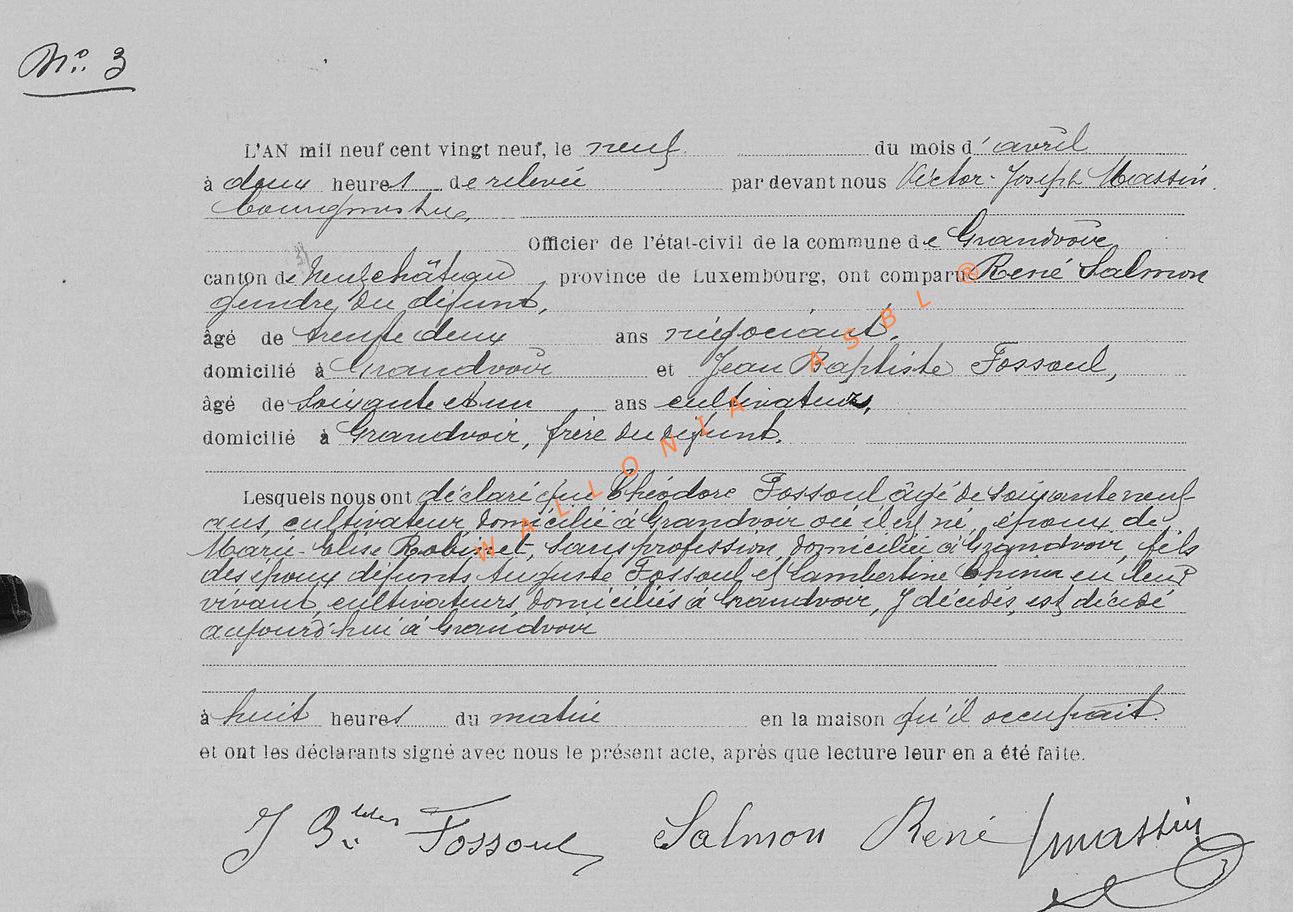 N° 3
L'AN mil neuf cent vingt neuf, le neuf du mois d'avril
à deux heures de relevée par devant nous Victor-Joseph Massin,
bourgmestre,
Officier de l'état-civil de la commune de Grandvoir,
canton de Neufchâteau, province de Luxembourg, ont comparu René Salmon
gendre du défunt,
âgé de trente deux ans négociant,
domicilié à Grandvoir et Jean Baptiste Fossoul,
âgé de soixante et un ans cultivateur,
domicilié à Grandvoir, frère du défunt.
Lesquels nous ont déclaré que Théodore Fossoul âgé de soixante neuf
ans, cultivateur domicilié à Grandvoir où il est né, époux de
Marie-Elise Robinet, sans profession, domiciliée à Grandvoir, fils
des époux défunts Auguste Fossoul et Lambertine en leur
vivant cultivateurs, domiciliés à Grandvoir, y décédés, est décédé
aujourd'hui à Grandvoir
à huit heures du matin en la maison qu'il occupait.
et ont les déclarants signé avec nous le présent acte, après que lecture leur en a été faite.
J B Fossoul Salmon René Jmassin
WALLONIA ASBL ®